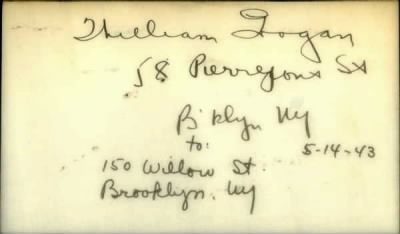 William Gogan
58 Pierrepont St
B'klyn NY
to: 5-14-43
150 Willow St.
Brooklyn. NY